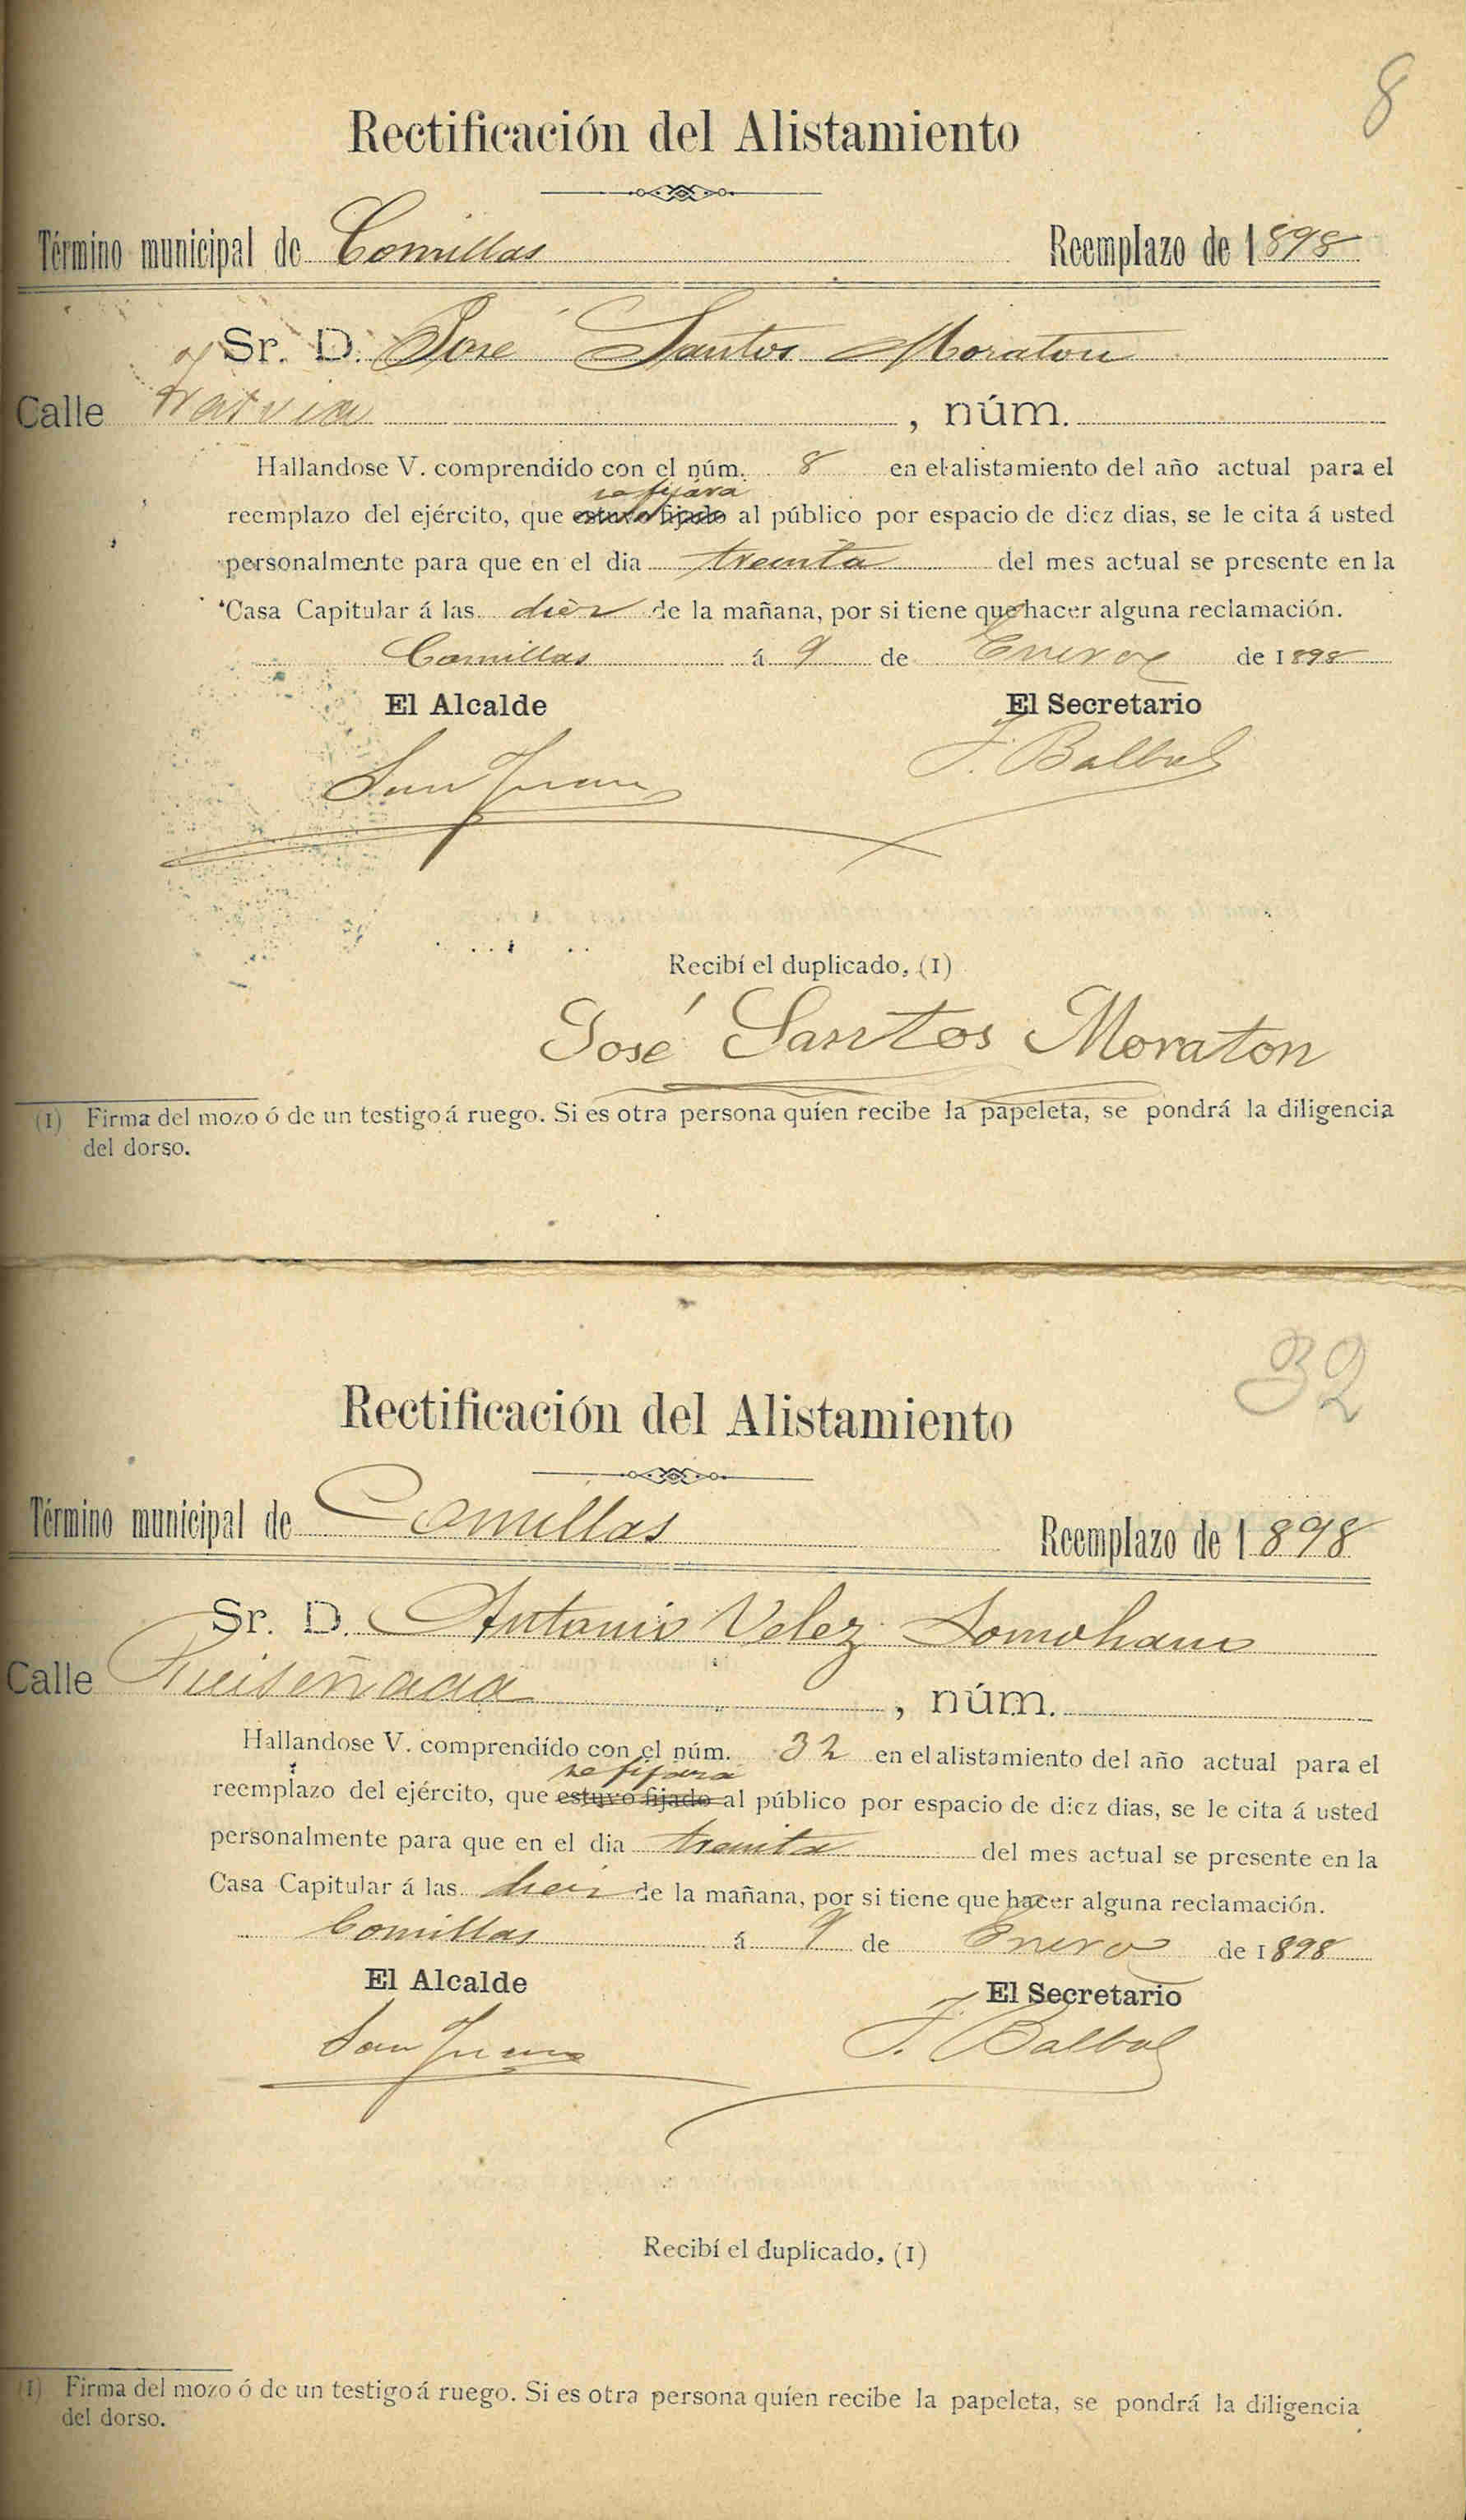 8
Rectificación del Alistamiento
Término municipal de Comillas Reemplazo de 1898
Sr. D. José Santos Moraton
Calle , núm.
Hallandose V. comprendido con el núm. 8 en el alistamiento del año actual para el
se fijára
reemplazo del ejército, que estuvo fijado al público por espacio de diez dias, se le cita á usted
personalmente para que en el dia treinta del mes actual se presente en la
Casa Capitular á las diez de la mañana, por si tiene que hacer alguna reclamación.
Comillas á 9 de Enero de 1898
El Alcalde El Secretario
San Juan J. Balbas
Recibí el duplicado, (1)
José Santos Moraton
(1) Firma del mozo ó de un testigo á ruego. Si es otra persona quíen recibe la papeleta, se pondrá la diligencia
del dorso.
32
Rectificación del Alistamiento
Término municipal de Comillas Reemplazo de 1898
Sr. D. Antonio Velez Somohano
Calle Ruiseñada , núm.
Hallandose V. comprendido con el núm. 32 en el alistamiento del año actual para el
se fijara
reemplazo del ejército, que estuvo fijado al público por espacio de diez dias, se le cita á usted
personalmente para que en el dia treinta del mes actual se presente en la
Casa Capitular á las de la mañana, por si tiene que hacer alguna reclamación.
Comillas á 9 de Enero de 1898
El Alcalde El Secretario
San Juan J. Balbas
Recibí el duplicado, (1)
(1) Firma del mozo ó de un testigo á ruego. Si es otra persona quíen recibe la papeleta, se pondrá la diligencia
del dorso.